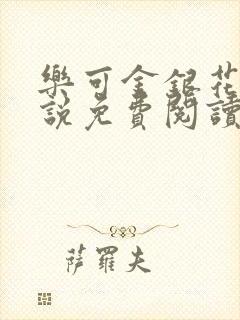 樂可金銀花
說免費閱讀
薩羅夫